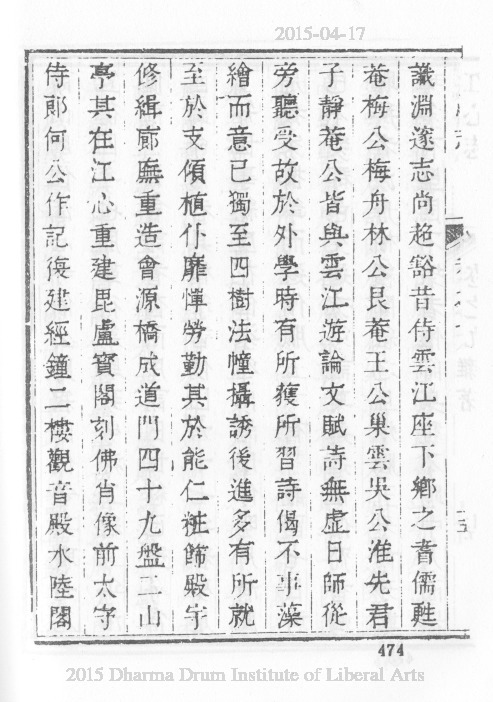 2015-04-17
識淵邃志尚超豁昔侍雲江座下鄉之耆儒甦
菴梅公梅舟林公艮菴王公巢雲吳公淮先君
子靜菴公皆與雲江遊論文賦詩無虛日師從
旁聽受故於外學時有所獲所習詩偈不事藻
繪而意已獨至四樹法幢攝誘後進多有所就
至於支傾植仆靡憚勞勤其於能仁粧飾殿宇
修緝廊廡重造會源橋成道門四十九盤二山
亭其在江心重建毘盧寶閣刻佛肖像前太守
侍郎何公作記復建經鐘二樓觀音殿水陸閣
474
2015 Dharma Drum Institute of Liberal Arts